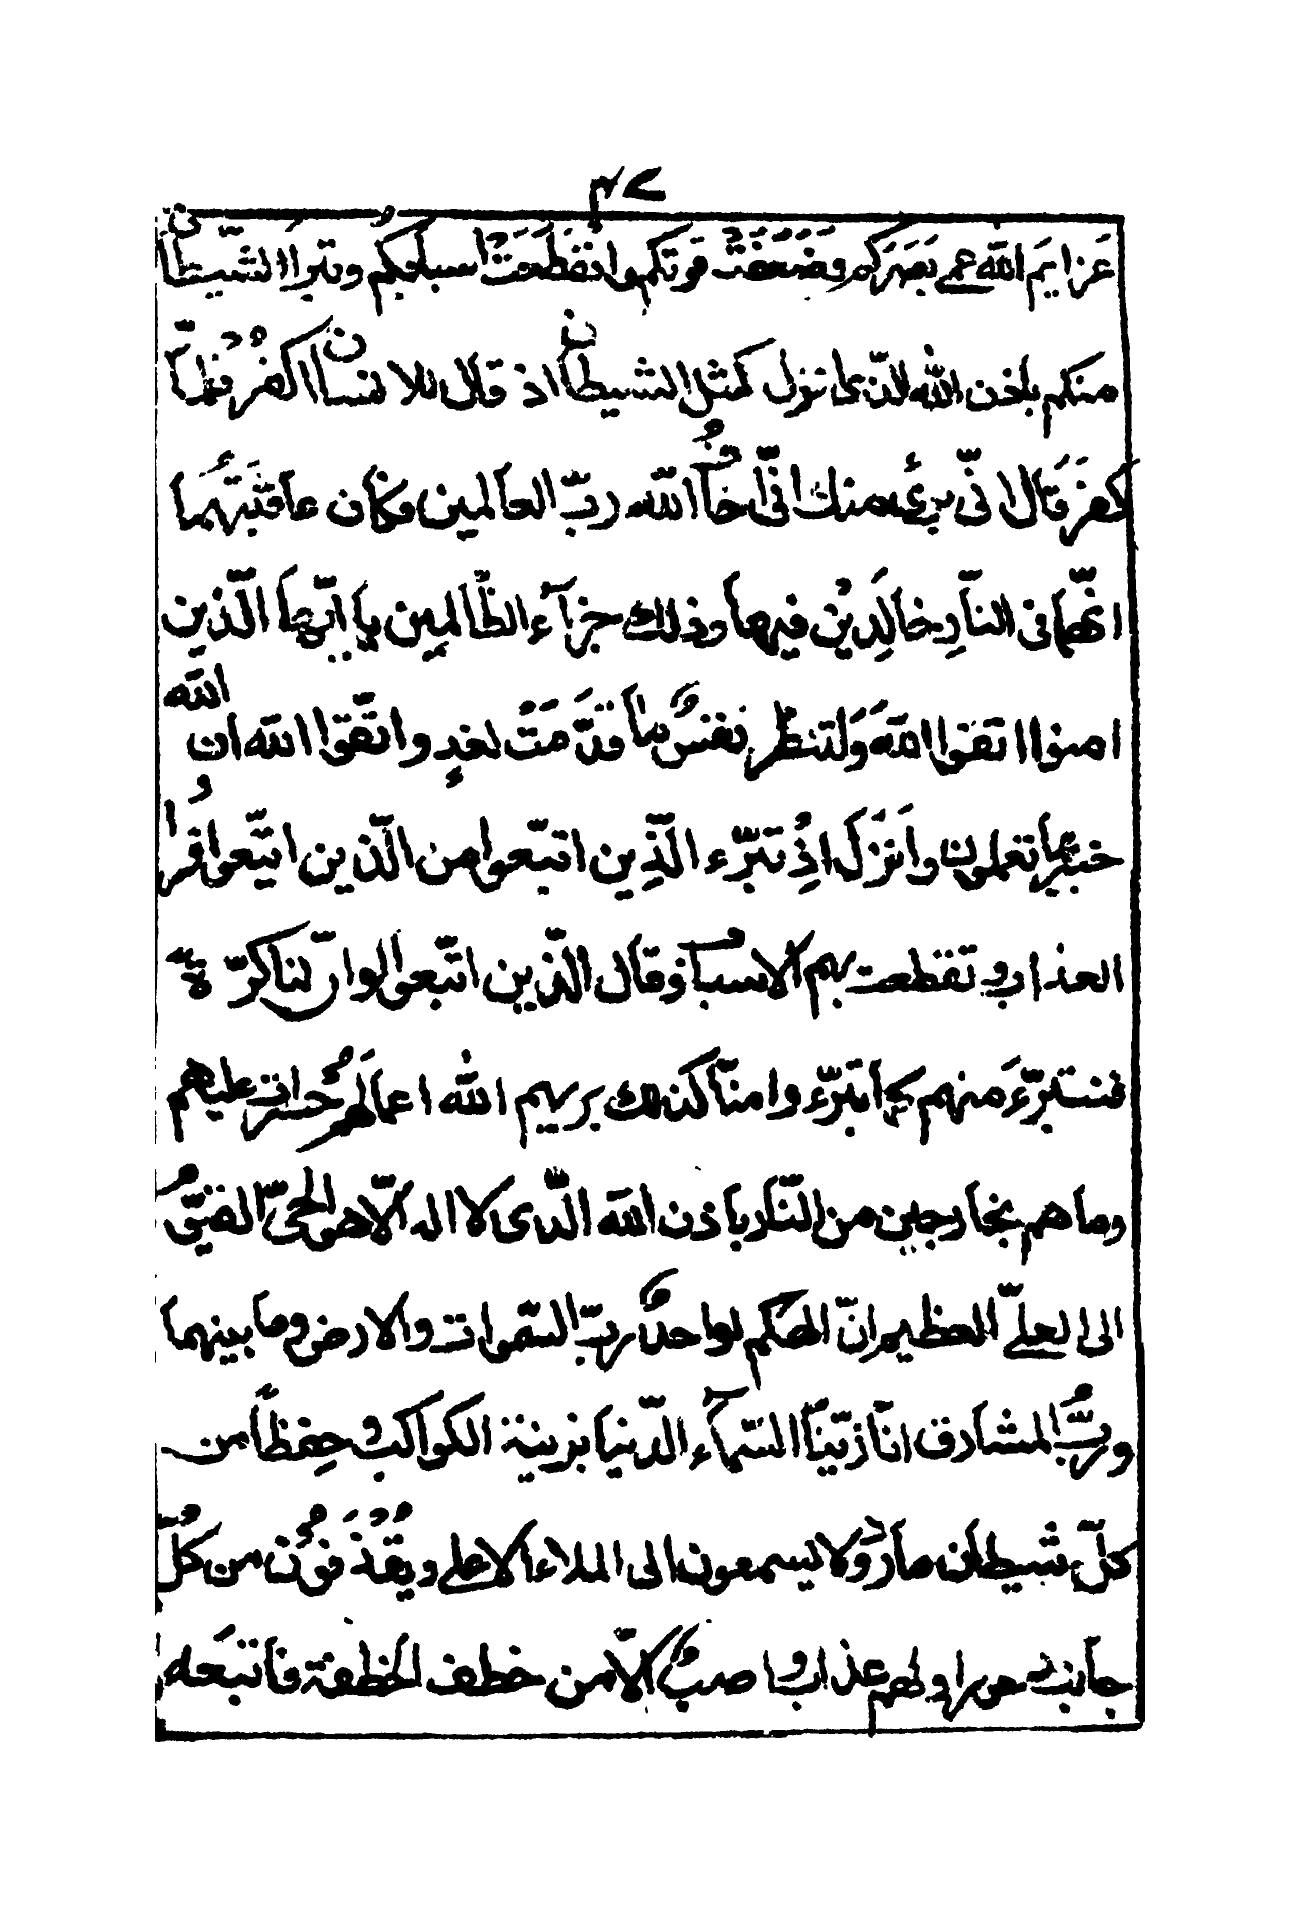 ٤٢
عزايم الله عمى بصركم وضعفت قوتكم وانقطعت اسبابكم وتبرأ الشيطان
منكم باذن الله الذى نزل كمثل الشيطان اذ قال للانسان اكفر فلما
كفر قال انى برئ منك انى اخاف الله رب العالمين فكان عاقبتهما
انهما فى النار خالدين فيها وذلك جزآء الظالمين يا ايها الذين
امنوا اتقوا الله ولتنظر نفس ما قدمت لغد واتقوا الله ان الله
خبير بما تعملون وانزل اذ تبرء الذين اتبعوا من الذين اتبعوا وراوا
العذاب وتقطعت بهم الاسباب وقال الذين اتبعوا لو ان لنا كرة
فنتبرء منهم كما تبرء وا منا كذلك يريهم الله اعمالهم حسرات عليهم
وما هم بخارجين من النار باذن الله الذى لا اله الا هو الحى القيوم
الى العلى العظيم ان الهكم لواحد رب السموات والارض وما بينهما
ورب المشارق انا زينا السمآء الدنيا بزينة الكواكب وحفظا من
كل شيطان مارد ولا يسمعون الى الملاء الاعلى ويقذفون من كل
جانب دحورا ولهم عذاب واصب الا من خطف الخطفة فاتبعه